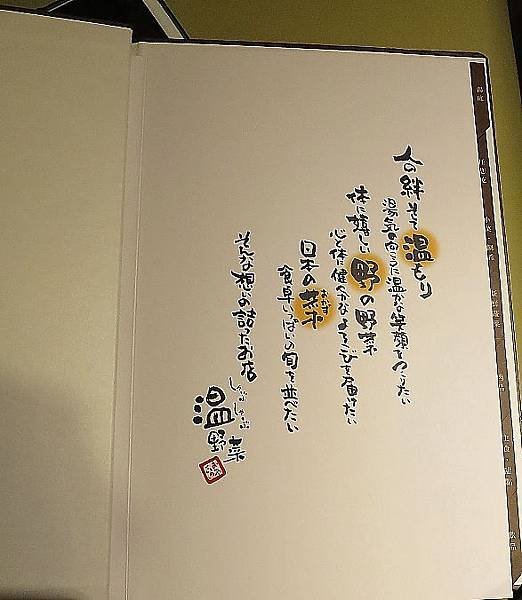 人の絆そして温もり
湯気の向こうに温かな笑顔をつくりたい
体に嬉しい野の野菜
心と体に健やかなよろこびを届けたい
日本の菜
おかず
食卓いっぱいの旬を並べたい
そんな想いの詰ったお店
しゃぶしゃぶ
温野菜